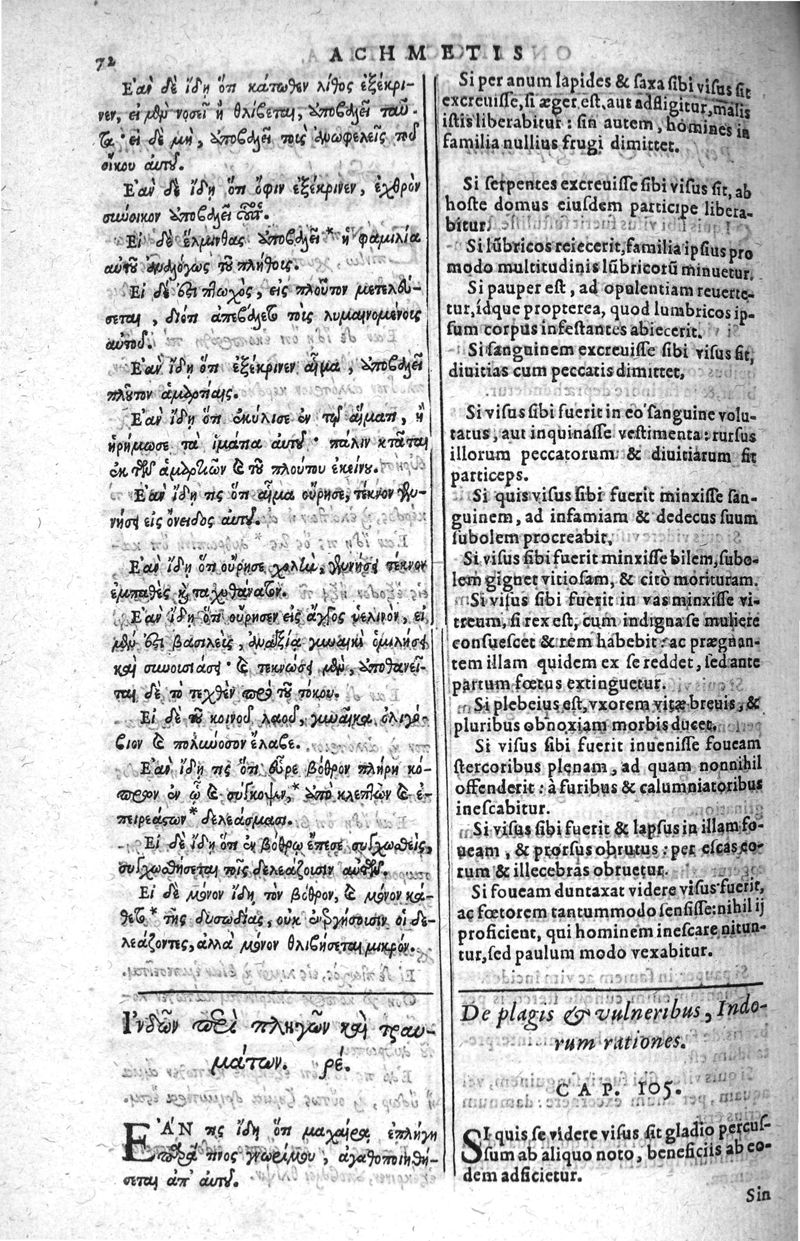 72
ACHMETIS
Ἐὰν δὲ ἴδῃ ὅτι κάτωθεν λίθος ἐξέκρι-
νεν, εἰ μὲν νοσεῖ ἢ θλίβεται, ἀποβαλεῖ ταῦ-
τα· εἰ δὲ μὴ, ἀποβαλεῖ τοὺς ἀνωφελεῖς τοῦ
οἴκου αὐτοῦ.
Ἐὰν δὲ ἴδῃ ὅτι ὄφιν ἐξέκρινεν, ἐχθρὸν
σύνοικον ἀποβαλεῖ
Εἰ δὲ ἕλμινθας ἀποβαλεῖ * ἡ φαμιλία
αὐτοῦ ἀναλόγως τοῦ πλήθους.
Εἰ δέ ἐστι πτωχὸς, εἰς πλοῦτον μετελεύ-
σεται, διότι ἀπεβάλετο τοῖς λυμαινομένοις
αὐτόν.
Ἐὰν ἴδῃ ὅτι ἐξέκρινεν αἷμα, ἀποβαλεῖ
πλοῦτον ἁμαρτίαις.
Ἐὰν ἴδῃ ὅτι ἐκύλισε ἐν τῷ αἵματι, ἢ
ἠρήμωσε τὰ ἱμάτια αὐτοῦ· πάλιν κτᾶται
ἐκ τῶν ἁμαρτιῶν καὶ τοῦ πλούτου ἐκείνου.
Ἐὰν ἴδῃ τις ὅτι αἷμα οὔρησε, τέκνον γεν-
νήσῃ εἰς ὄνειδος αὐτοῦ.
Ἐὰν ἴδῃ ὅτι οὔρησε χολὴν, γεννήσῃ τέκνον
ἐμπαθὲς καὶ ταχυθάνατον.
Ἐὰν ἴδῃ ὅτι οὔρησεν εἰς ἄγγος ὑέλινον, εἰ
μέν ἐστι βασιλεὺς, ἀναξίᾳ γυναικὶ ὁμιλήσῃ
καὶ συνουσιάσῃ· καὶ τεκνώσῃ μὲν, ἀποθανεῖ-
ται δὲ τὸ τεχθὲν πρὸ τοῦ τόκου.
Εἰ δὲ τοῦ κοινοῦ λαοῦ, γυναῖκα ὀλιγό-
βιον καὶ πολύνοσον ἔλαβε.
Ἐὰν ἴδῃ τις ὅτι εὗρε βόθρον πλήρη κό-
πρου ἐν ᾧ καὶ συγκόψει, * ὑπὸ κλεπτῶν καὶ ἐ-
πηρεαστῶν * δελεάσμασι.
Εἰ δὲ ἴδῃ ὅτι ἐν βόθρῳ ἔπεσε συγχωθεὶς,
συγχωθήσεται τοῖς δελεάζουσιν αὐτόν.
Εἰ δὲ μόνον ἴδῃ τὸν βόθρον, καὶ μόνον κά-
θετο * τῆς δυσωδίας, οὐκ ἐνεργήσουσιν οἱ δε-
λεάζοντες, ἀλλὰ μόνον θλιβήσεται μικρόν.
Ἰνδῶν περὶ πληγῶν καὶ τραυ-
μάτων. ρέ.
ἘΑΝ τις ἴδῃ ὅτι μαχαίρᾳ ἐπλήγη
παρά τινος γνωρίμου, ἀγαθοποιηθή-
σεται ἀπ' αὐτοῦ.
Si per anum lapides & saxa sibi visus sit
excreuisse, si æger est, aut adfligitur, malis
istis liberabitur: sin autem, homines in
familia nullius frugi dimittet.
Si serpentes excreuisse sibi visus sit, ab
hoste domus eiusdem participe libera-
bitur.
Si lūbricos reiecerit, familia ipsius pro
modo multitudinis lūbricorū minuetur.
Si pauper est, ad opulentiam reuerte-
tur, idque propterea, quod lumbricos ip-
sum corpus infestantes abiecerit.
Si sanguinem excreuisse sibi visus sit,
diuitias cum peccatis dimittet,
Si visus sibi fuerit in eo sanguine volu-
tatus, aut inquinasse vestimenta: rursus
illorum peccatorum & diuitiarum fit
particeps.
Si quis visus sibi fuerit minxisse san-
guinem, ad infamiam & dedecus suum
subolem procreabit.
Si visus sibi fuerit minxisse bilem, subo-
lem gignet vitiosam, & citò morituram.
Si visus sibi fuerit in vas minxisse vi-
treum, si rex est, cum indigna se muliere
consuescet & rem habebit: ac prægnan-
tem illam quidem ex se reddet, sed ante
partum fœtus extinguetur.
Si plebeius est, vxorem vitæ breuis, &
pluribus obnoxiam morbis ducet.
Si visus sibi fuerit inuenisse foueam
stercoribus plenam, ad quam nonnihil
offenderit: à furibus & calumniatoribus
inescabitur.
Si visus sibi fuerit & lapsus in illam fo-
ueam, & prorsus obrutus: per escas eo-
rum & illecebras obruetur.
Si foueam duntaxat videre visus fuerit,
ac fœtorem tantummodo sensisse: nihil ij
proficient, qui hominem inescare nitun-
tur, sed paulum modo vexabitur.
De plagis & vulneribus, Indo-
rum rationes.
CAP. 105.
SI quis se videre visus sit gladio percus-
sum ab aliquo noto, beneficiis ab eo-
dem adficietur.
Sin